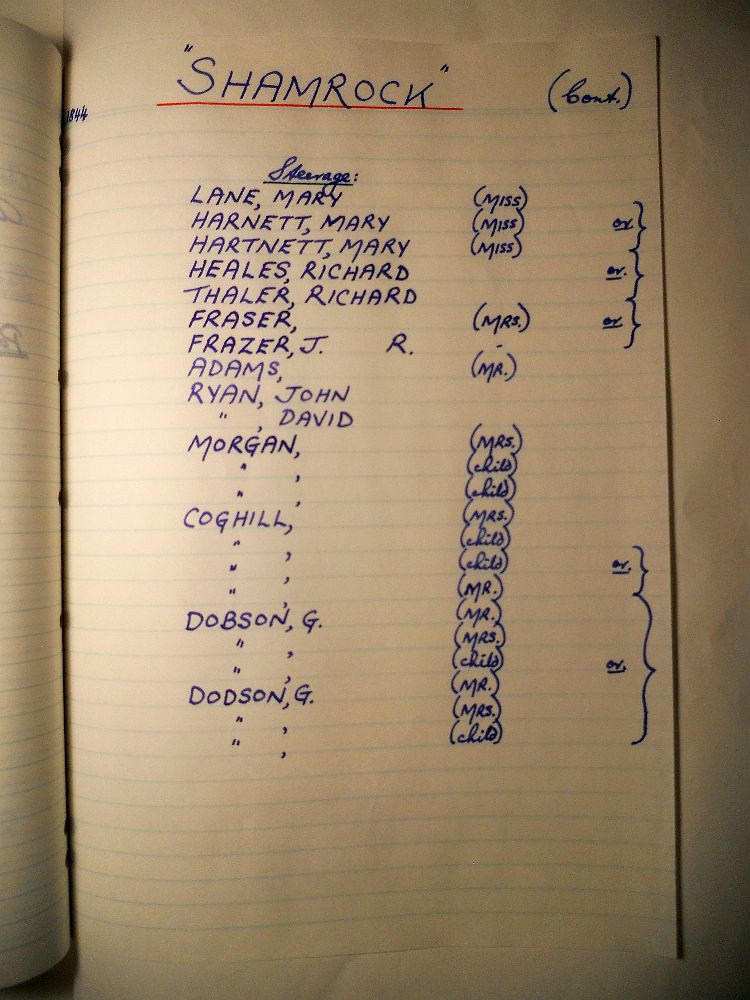 "SHAMROCK" (Cont.)
1844
Steerage:
LANE, MARY (MISS)
HARNETT, MARY (MISS) or.
HARTNETT, MARY (MISS)
HEALES, RICHARD or.
THALER, RICHARD
FRASER, (MRS.) or.
FRAZER, J. R. -
ADAMS, (MR.)
RYAN, JOHN
" , DAVID
MORGAN, (MRS.)
" , (child)
" , (child)
COGHILL, (MRS.)
" , (child)
" , (child) or.
" , (MR.)
DOBSON, G. (MR.)
" , (MRS.)
" , (child) or.
DODSON, G. (MR.)
" , (MRS.)
" , (child)